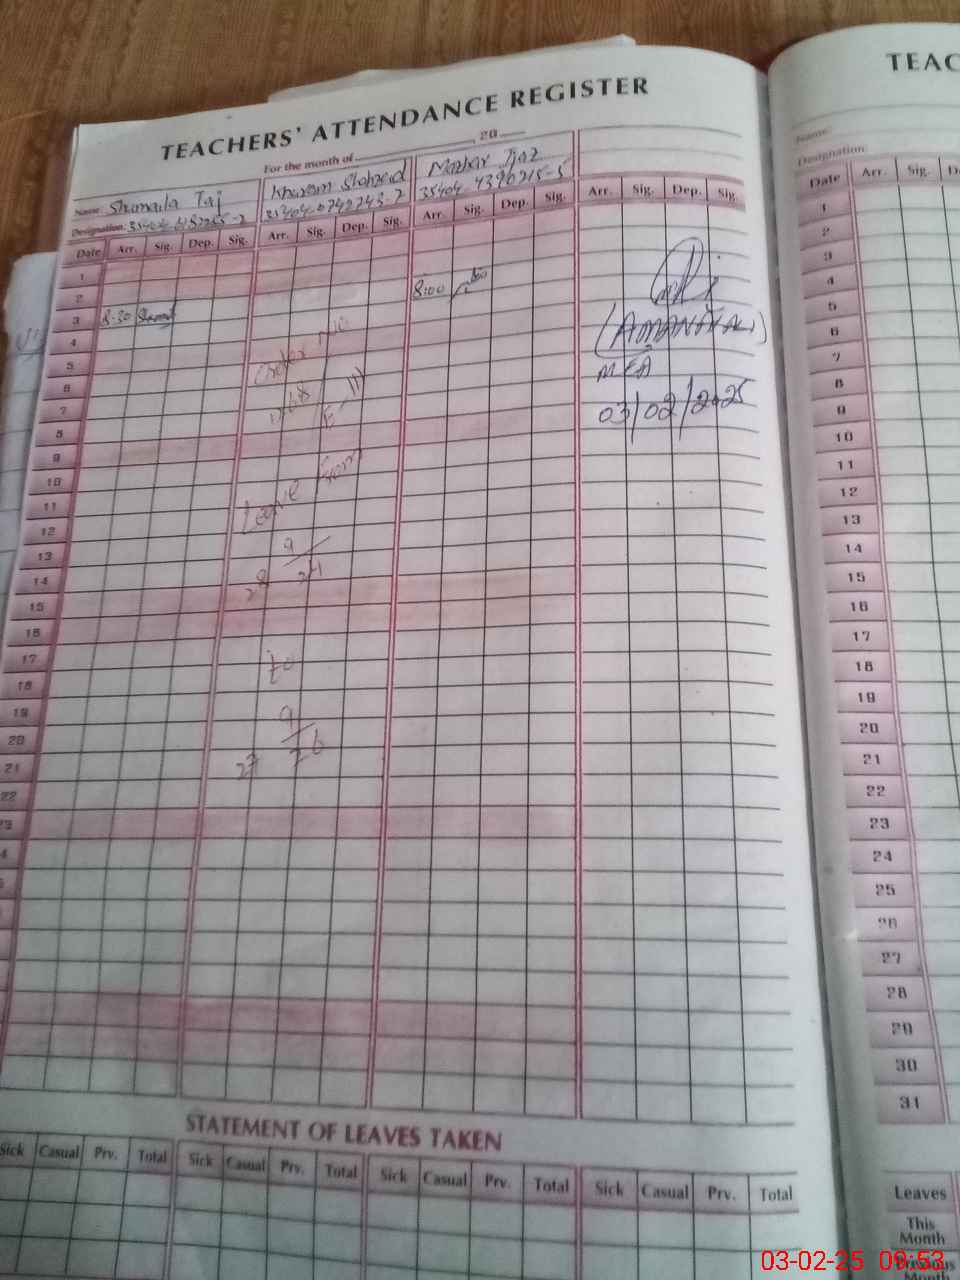 TEACHERS' ATTENDANCE REGISTER
For the month of 20
Name: Shumaila Taj Khuram Shahzad Mazhar Ijaz
Designation: 35404-0742743-7 35404-4390215-5
Date Arr. Sig. Dep. Sig. Arr. Sig. Dep. Sig. Arr. Sig. Dep. Sig. Arr. Sig. Dep. Sig.
1
2
3 8:30 8:00
4
5
6
7
8
9
10
11
12
13
14
15
16
17
18
19
20
21
22
23
Order No
E-III
Leave From
28 9/24
to
27 9/26
MEA
03/02/2025
STATEMENT OF LEAVES TAKEN
Sick Casual Prv. Total Sick Casual Prv. Total Sick Casual Prv. Total Sick Casual Prv. Total
TEAC
Name:
Designation:
Date Arr. Sig.
1
2
3
4
5
6
7
8
9
10
11
12
13
14
15
16
17
18
19
20
21
22
23
24
25
26
27
28
29
30
31
Leaves
This
Month
Previous
Month
03-02-25 09:53